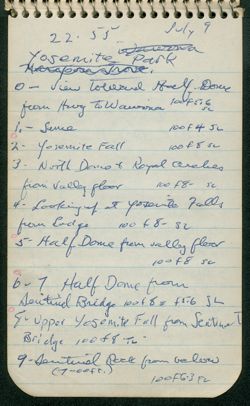 July 9
22.55
Yosemite Park
0 - View toward Half Dome
from Hwy to Wawona 100 f 5.6
SL
1 - Same 100 f 4 SL
2 - Yosemite Fall 100 f 8
3 - North Dome & Royal Arches
from valley floor 100 f 8 - SL
4 - Looking up at Yosemite Falls
from lodge 100 f 8 - SL
5 - Half Dome from valley floor
100 f 8 - SL
6 - 7 Half Dome from
Sentinel Bridge 100 f 8 & f 5.6 SL
8 - Upper Yosemite Fall from Sentinel
Bridge 100 f 8
9 - Sentinel Rock from below
100 f 6.3 SL